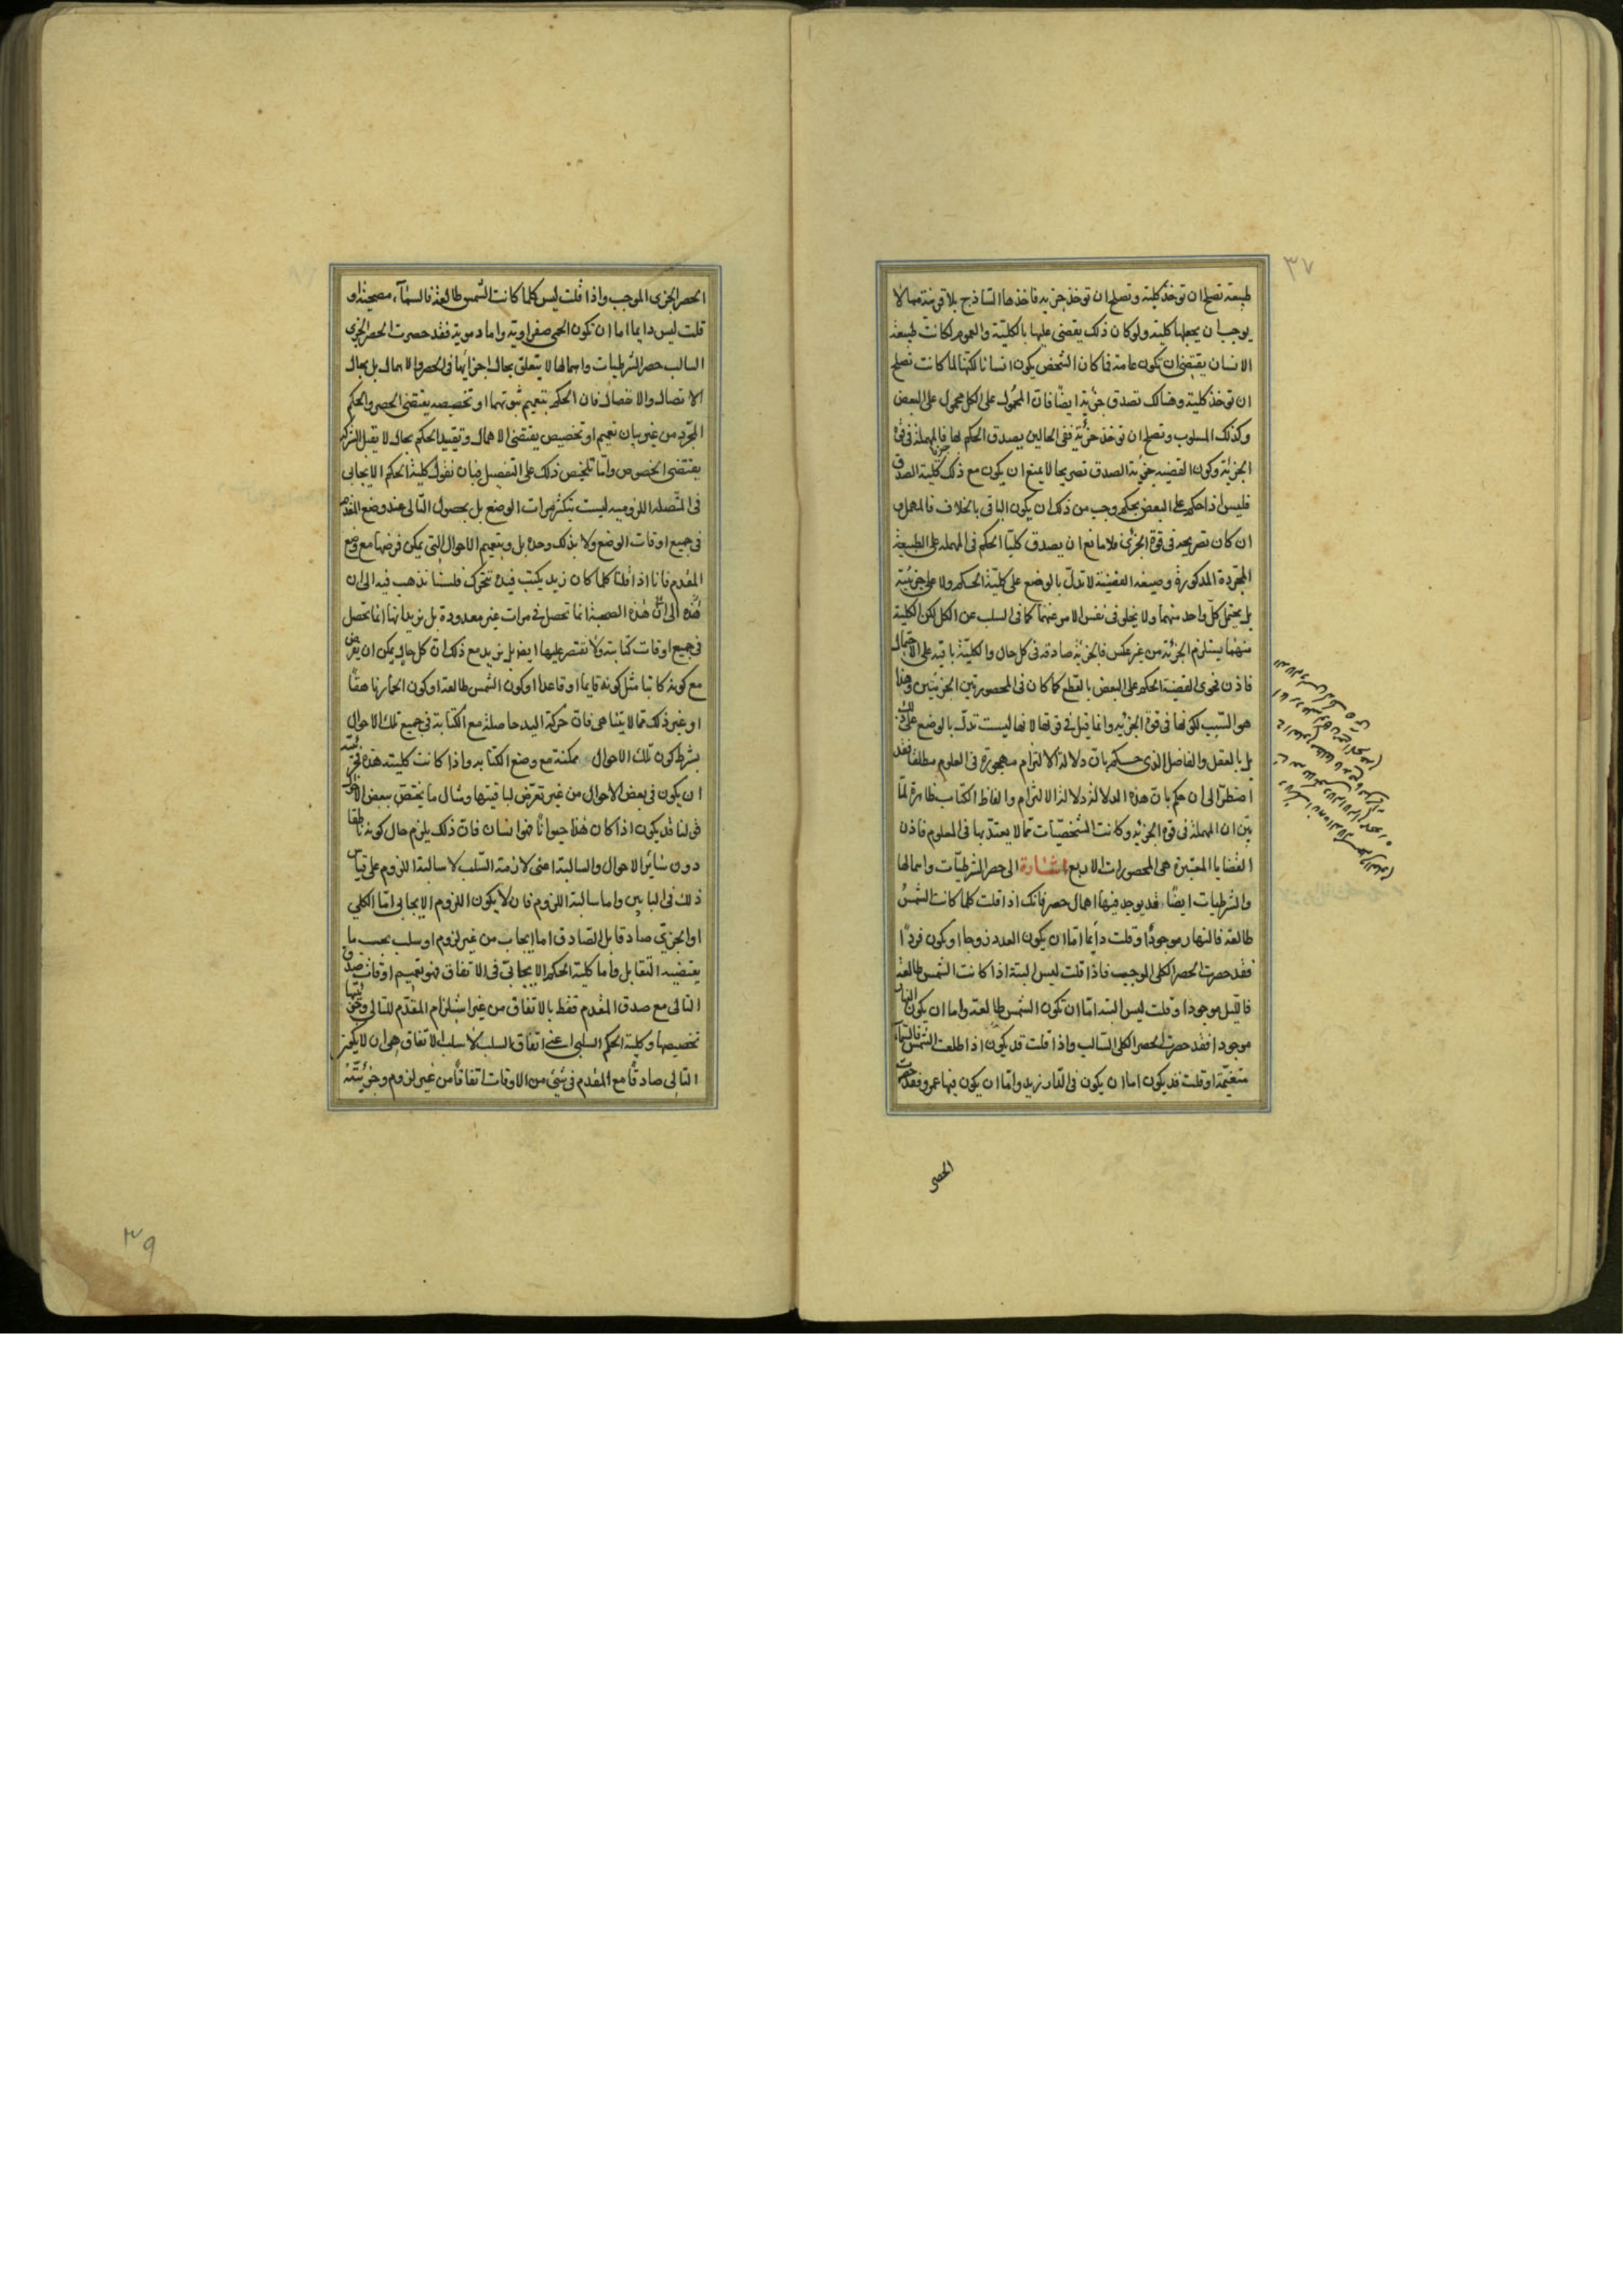 ٣٧
طبیعة تصلح ان توخذ کلیة و تصلح ان توخذ جزیه فاخذها الساذج بلا قرینة مما لا
یوجب ان یجعلها کلیة ولو کان ذلک یقضی علیها بالکلیّة والعموم لکانت طبیعة
الانسان یقتضی ان تکون عامة فما کان الشخص یکون انسانا لکنها لما کانت تصلح
ان توخذ کلیة و هنالک تصدق جزئیة ایضًا فان المحمول علی الکل محمول علی البعض
وکذلک المسلوب وتصلح ان توخذ جزئیّة ففی الحالین یصدق الحکم لها جزئیا فالمهملة فی قوة
الجزئیة وکون القضیه جزئیة الصدق تصریحا لا یمنع ان یکون مع ذلک کلیة الصدق
فلیس اذا حکم علی البعض بحکم وجب من ذلک ان یکون الباقی بالخلاف فالمهمل و
ان کان تصریحه فی قوة الجزئی فلا مانع ان یصدق کلیّا الحکم فی المهملة علی الطبیعة
المجردة المذکورة وصیغه القضیّة لا تدلّ بالوضع علی کلیّة الحکم ولا علی جزئیّته
بل یحتمل کلّ واحد منهما ولا یخلو فی نفس الامر عنهما کما فی السلب عن الکل لکن الکلیة
منهما یستلزم الجزئیّة من غیر عکس فالجزئیّة صادقه فی کل حال والکلیّة باقیه علی الاحتمال
فاذن فحوی القضیة الحکم علی البعض بالقطع کما کان فی المحصورتین الجزئیتین وهذا
هو السّبب لکونها فی قوة الجزئیه وانما قیل فی قوتها لانها لیست تدلّ بالوضع علی ذلک
بل بالعقل والفاضل الذی حکم بان دلالة الالتزام مهجورة فی العلوم مطلقا فقد
اضطرّ الی ان حکم بان هذه الدلالة دلالة الالتزام والفاظ الکتاب ظاهرة لمّا
بیّن ان المهملة فی قوة الجزئیه وکانت الشخصیّات ممّا لا یعتدّ بها فی العلوم فاذن
القضایا المعتبرة هی المحصورات الاربع اشارة الی حصر الشرطیّات واهمالها
والشرطیات ایضًا قد یوجد فیها اهمال وحصر فانک اذا قلت کلما کانت الشّمس
طالعة فالنهار موجودًا وقلت دآیما امّا ان یکون العدد زوجا او کون فردًا
فقد حصرت الحصر الکلی الموجب فاذا قلت لیس البتة اذا کانت الشمس طالعة
فاللیل موجودا وقلت لیس البتة امّا ان تکون الشمس طالعة واما ان یکون النهار
موجودا فقد حصرت الحصر الکلی السّالب واذا قلت قد یکون اذا طلعت الشّمس فالسّمآء
متغیّمة او قلت قد یکون اما ان یکون فی الدار زید وامّا ان یکون فیها عمرو فقد حصرت
الحصر
الحصر الجزی الموجب واذا قلت لیس کلما کانت الشّمس طالعة فالسّمآء مصحیة او
قلت لیس دایما اما ان تکون الحمی صفراویة واما دمویة فقد حصرت الحصر الجزی
السالب حصر الشرطیات واهمالها لا یتعلق بحال اجزایها فی الحصر والاهمال بل بحال
الاتصال والانفصال فان الحکم بتعمیم ثبوتهما او تخصیصه یقتضی الحصر والحکم
المجرّد من غیر بیان تعمیم او تخصیص یقتضی الاهمال و تقیید الحکم بحال لا یقبل الشرکة
یقتضی الخصوص وامّا تلخیص ذلک علی التفصیل فبان نقول کلیة الحکم الایجابی
فی المتّصله اللزومیه لیست بتکثر مرات الوضع بل بحصول التّالی عند وضع المقدم
فی جمیع اوقات الوضع ولا بذلک وحده بل وبتعمیم الاحوال التی یمکن فرضها مع وضع
المقدم فانا اذا قلنا کلما کان زید یکتب فیده تتحرک فلسنا نذهب فیه الی ان
هذه الی انّ هذه الصحبة انما تحصل فی مرات غیر معدودة بل نرید انها انما تحصل
فی جمیع اوقات کتابته ولا نقتصر علیها ایضا بل نرید مع ذلک ان کل حال یمکن ان یفرض
مع کونه کاتبا مثل کونه قایما او قاعدا او کون الشّمس طالعة او کون الحمار ناهقًا
او غیر ذلک مما لا یتناهی فان حرکة الید حاصلة مع الکتابة فی جمیع تلک الاحوال
بشرط کون تلک الاحوال ممکنة مع وضع الکتابه واذا کانت کلیته هذه فجزئیته
ان یکون فی بعض الاحوال من غیر تعرّض لباقیتها ومثال ما یختصّ ببعض الاحوال
قولنا قد یکون اذا کان هذا حیوانًا فهو انسان فان ذلک یلزم حال کونه ناطقا
دون سائر الاحوال والسالبة اعنی لازمة السّلب لا سالبة اللزوم علی قیاس
ذلک فی البابین واما سالبة اللزوم فان لا یکون اللزوم الایجابی امّا الکلی
او الجزئی صادقا بل الصّادق اما ایجاب من غیر لزوم او سلب بحسب ما
یقتضیه التقابل واما کلیة الحکم الایجابیّ فی الاتفاق فهو بتعمیم اوقات صدق
التالی مع صدق المقدم فقط بالاتفاق من غیر استلزام المقدّم للتالی وجزئیتها
تخصیصها وکلیة الحکم السلبی اعنی اتفاق السلب لا سلب الاتفاق هی ان لا یکون
التالی صادقًا مع المقدم فی شیء من الاوقات اتفاقًا من غیر لزوم وجزئیّته
٣٩